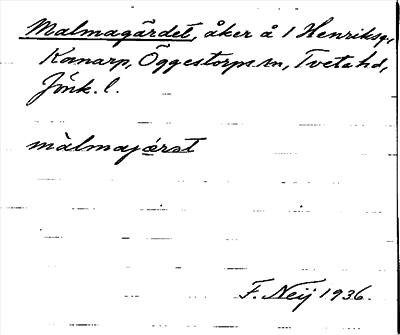 Malmagärdet, åker å 1 Henriksg.,
Kanarp, Öggestorps sn, Tveta hd,
Jönk. l.
màlmajǽrat
F. Neij 1936.